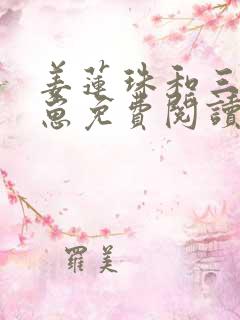 姜蓮珠和三
崽免費閱讀
羅美